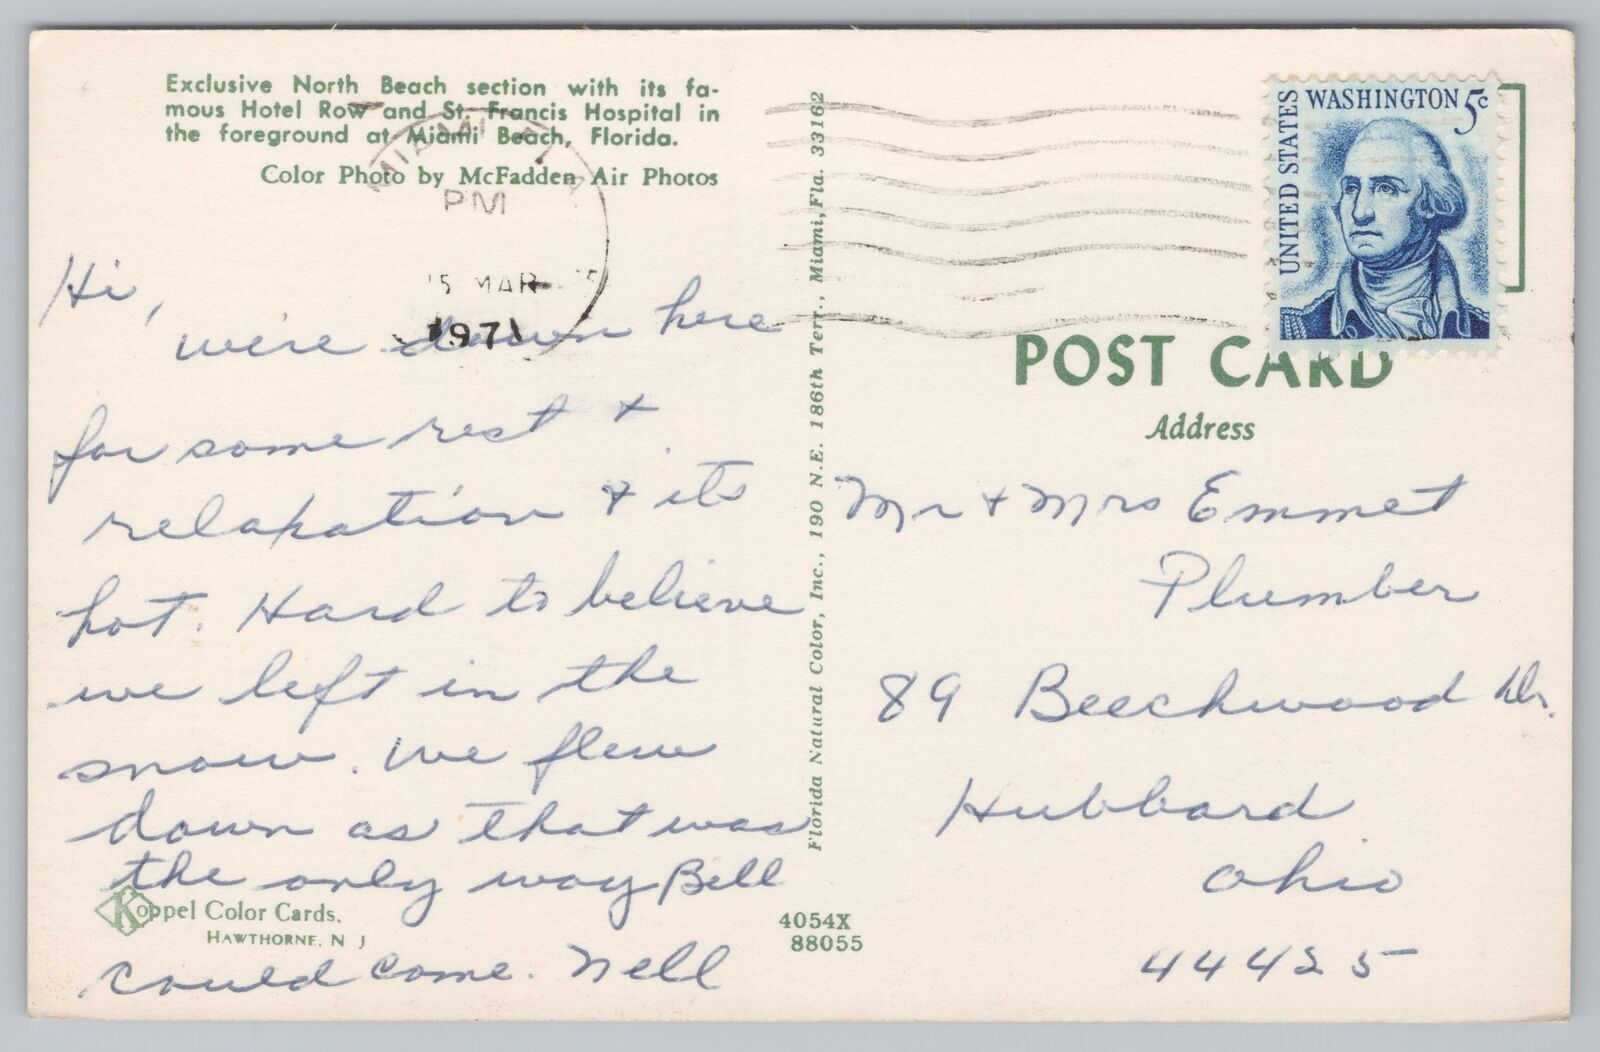 Exclusive North Beach section with its fa-
mous Hotel Row and St. Francis Hospital in
the foreground at Miami Beach, Florida.
Color Photo by McFadden Air Photos
MIAMI
PM
5 MAR
1971
Hi,
we're down here
for some rest +
relaxation + its
hot. Hard to believe
we left in the
snow. We flew
down as that was
the only way Bill
could come. Nell
Koppel Color Cards.
HAWTHORNE, N J
4054X
88055
Florida Natural Color, Inc., 190 N.E. 186th Terr., Miami, Fla. 33162
UNITED STATES
WASHINGTON 5c
POST CARD
Address
Mr + Mrs Emmet
Plumber
89 Beechwood Dr.
Hubbard
Ohio
44425